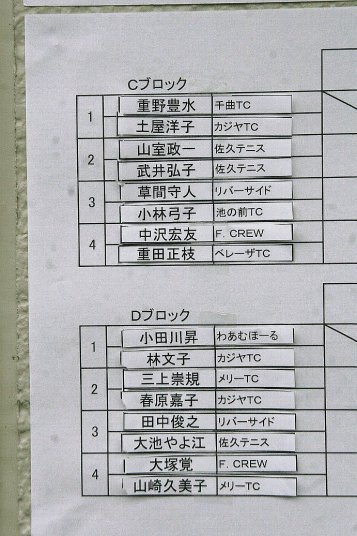 Cブロック
1 重野豊水 千曲TC
土屋洋子 カジヤTC
2 山室政一 佐久テニス
武井弘子 佐久テニス
3 草間守人 リバーサイド
小林弓子 池の前TC
4 中沢宏友 F. CREW
重田正枝 ベレーザTC
Dブロック
1 小田川昇 わあむぼーる
林文子 カジヤTC
2 三上崇規 メリーTC
春原嘉子 カジヤTC
3 田中俊之 リバーサイド
大池やよ江 佐久テニス
4 大塚覚 F. CREW
山崎久美子 メリーTC